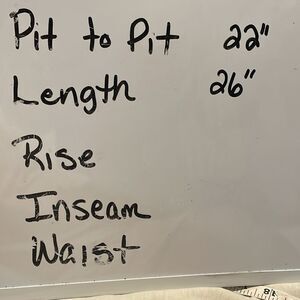 Pit to Pit 22"
Length 26"
Rise
Inseam
Waist